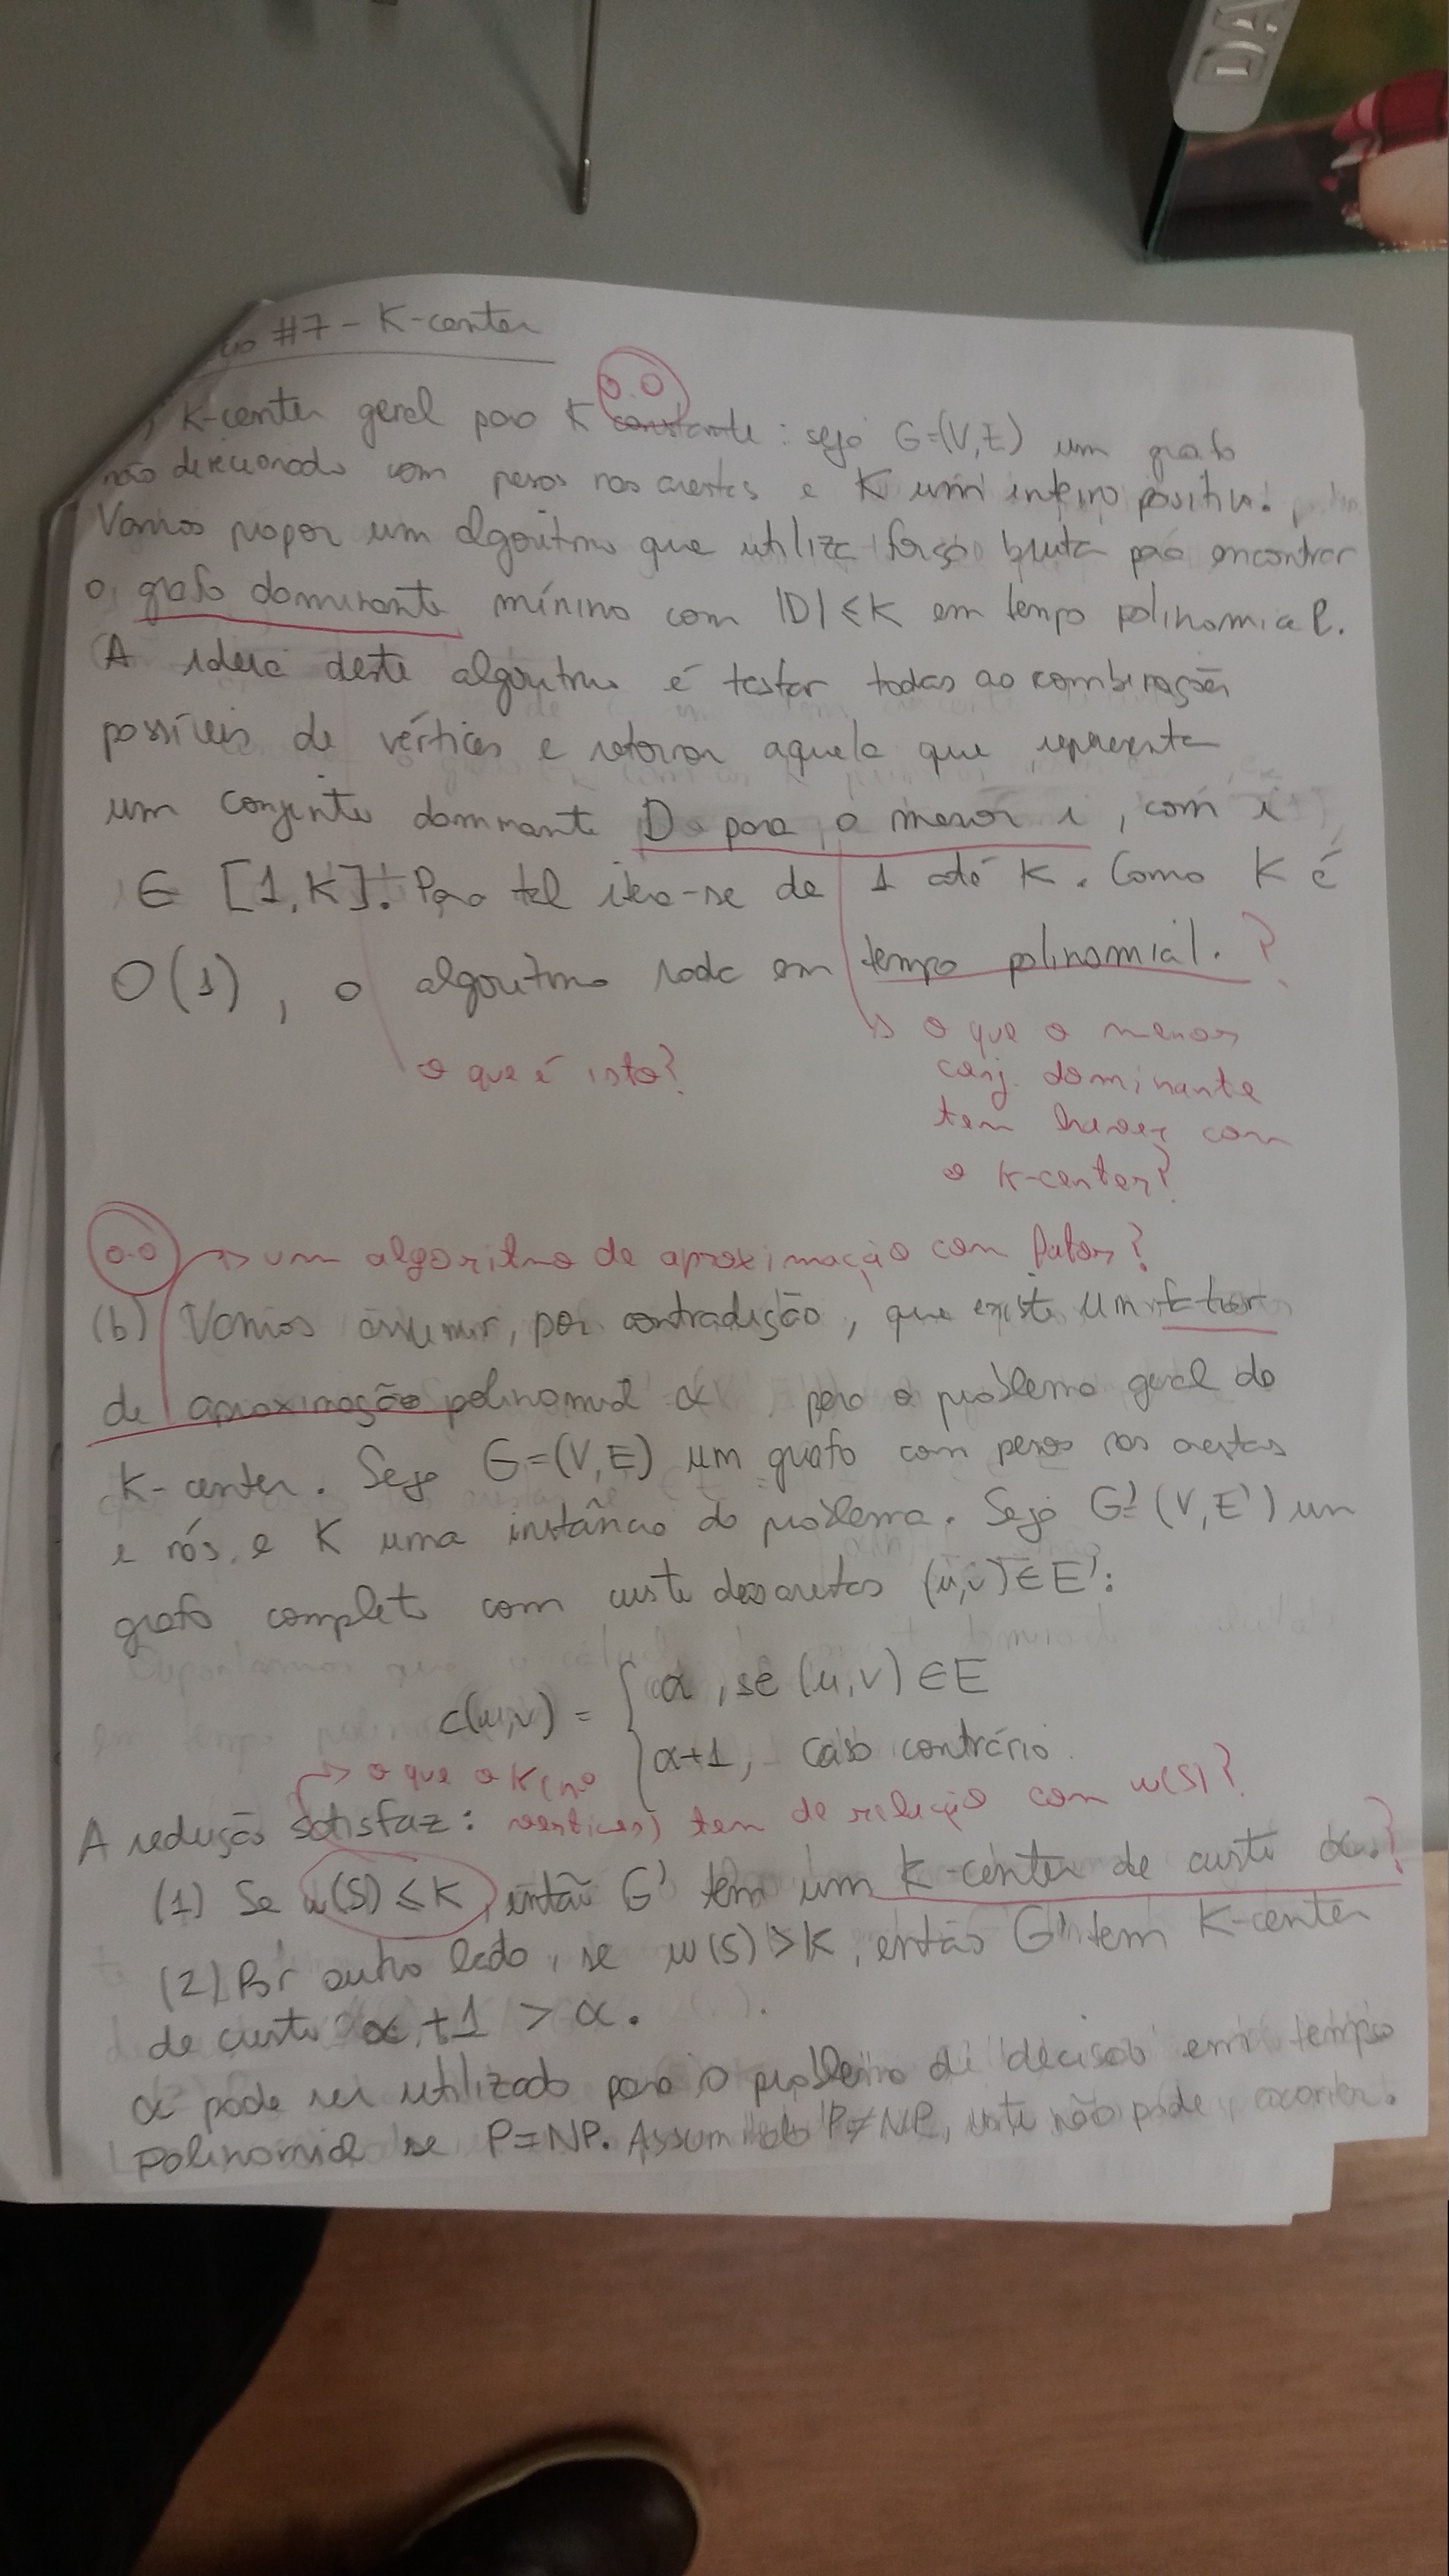 DA
#7 - K-center
K-center geral para K constante : seja G=(V,E) um grafo
0.0
não direcionado com pesos nas arestas e K um inteiro positivo.
Vamos propor um algoritmo que utiliza força bruta para encontrar
o grafo dominante mínimo com |D| ≤ K em tempo polinomial.
A ideia deste algoritmo é testar todas as combinações
possíveis de vértices e retornar aquela que representa
um conjunto dominante D para o menor i, com i
∈ [1,K]. Para tal itera-se de 1 até K. Como K é
O(1), o algoritmo roda em tempo polinomial. ?
o que é isto?
o que o menor
conj. dominante
tem haver com
o K-center?
0.0 → um algoritmo de aproximação com fator?
(b) Vamos assumir, por contradição, que existe um fator
de aproximação polinomial α para o problema geral do
K-center. Seja G=(V,E) um grafo com pesos nas arestas
e nós, e K uma instância do problema. Seja G'=(V,E') um
grafo completo com custo das arestas (u,v)∈E':
c(u,v) = { α, se (u,v) ∈ E
α+1, caso contrário
→ o que o K (nº
vertices) tem de relação com w(S)?
A redução satisfaz:
(1) Se w(S) ≤ K, então G' tem um K-center de custo α. ?
(2) Por outro lado, se w(S) > K, então G' tem K-center
de custo α+1 > α.
α pode ser utilizado para o problema de decisão em tempo
polinomial se P=NP. Assumindo P≠NP, isto não pode ocorrer.